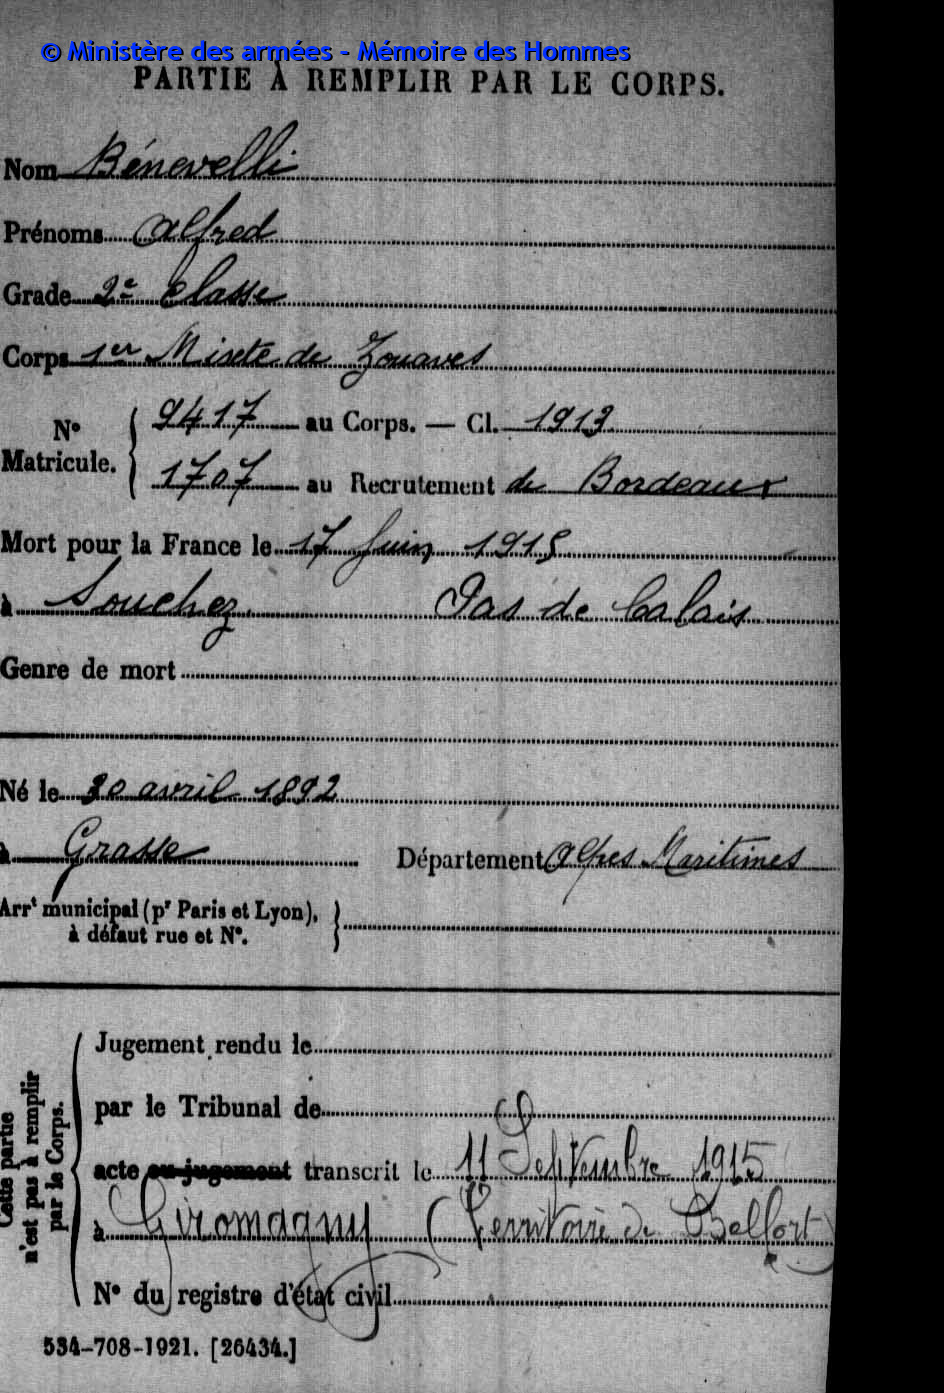 © Ministère des armées - Mémoire des Hommes
PARTIE À REMPLIR PAR LE CORPS.
Nom Bénevelli
Prénoms Alfred
Grade 2e Classe
Corps 1er Mixte de Zouaves
N° Matricule. { 9417 au Corps. — Cl. 1913
1707 au Recrutement de Bordeaux
Mort pour la France le 17 Juin 1915
à Souchez Pas de Calais
Genre de mort
Né le 30 avril 1892
à Grasse Département Alpes Maritimes
Arrt municipal (pr Paris et Lyon), à défaut rue et N°. }
Cette partie n'est pas à remplir par le Corps.
Jugement rendu le
par le Tribunal de
acte ou jugement transcrit le 11 Septembre 1915
à Giromagny (Territoire de Belfort)
N° du registre d'état civil
534-708-1921. [26434.]